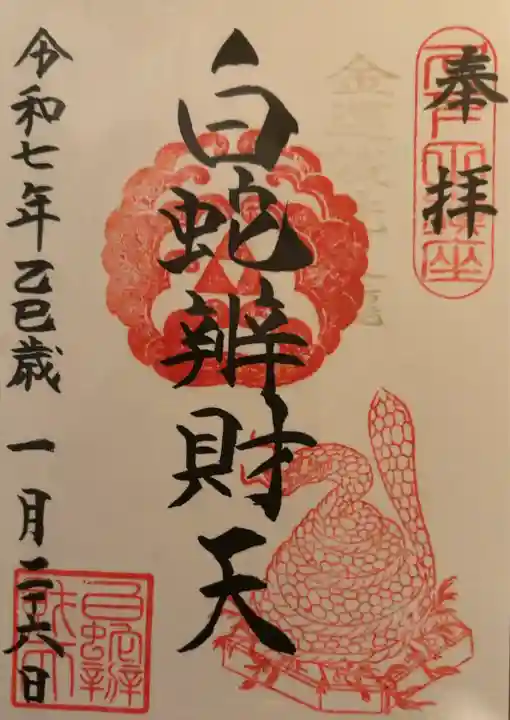 奉拝
白蛇辨財天
令和七年乙巳歳 一月二十六日